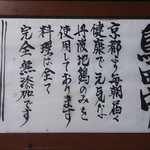 京都より毎朝届く
健康で元気な
丹波地鶏のみを
使用しております
料理は全て
完全無添加です